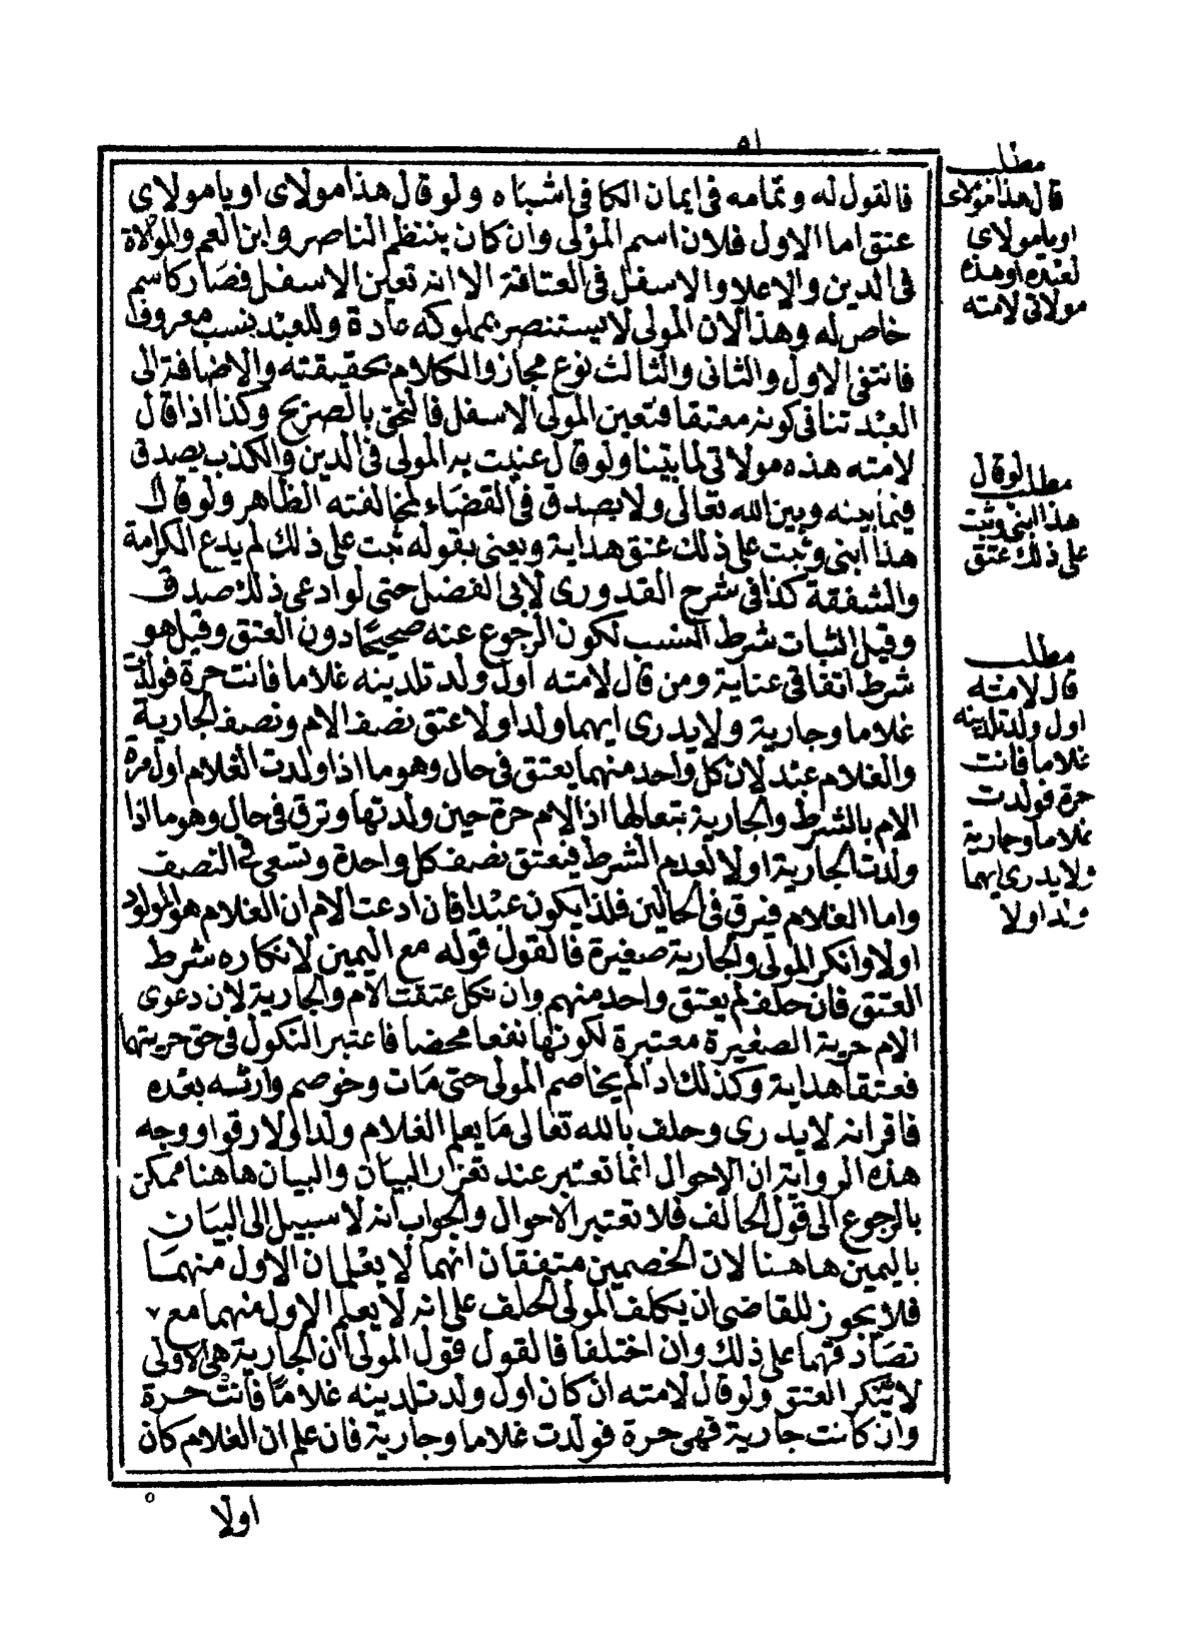 ٥١
فالقول له وتمامه فى ايمان الكافى اشباه ولو قال هذا مولاى او يا مولاى
عتق اما الاول فلان اسم المولى وان كان ينتظم الناصر وابن العم والموالاة
فى الدين والاعلا والاسفل فى العتاقة الا انه تعين الاسفل فصار كاسم
خاص له وهذا لان المولى لا يستنصر بمملوكه عادة وللعبد نسب معروف
فانتفى الاول والثانى والثالث نوع مجاز والكلام بحقيقته والاضافة الى
العبد تنافى كونه معتقا فتعين المولى الاسفل فالتحق بالصريح وكذا اذا قال
لامته هذه مولاتى لما بينا ولو قال عنيت به المولى فى الدين والكذب يصدق
فيما بينه وبين الله تعالى ولا يصدق فى القضاء لمخالفته الظاهر ولو قال
هذا ابنى وثبت على ذلك عتق هداية ويعنى بقوله ثبت على ذلك لم يدع الكرامة
والشفقة كذا فى شرح القدورى لابى الفضل حتى لو ادعى ذلك صدق
وقيل الثبات شرط النسب لكون الرجوع عنه صحيحا دون العتق وقيل هو
شرط اتفاقى عناية ومن قال لامته اول ولد تلدينه غلاما فانت حرة فولدت
غلاما وجارية ولا يدرى ايهما ولد اولا عتق نصف الام ونصف الجارية
والغلام عبد لان كل واحد منهما يعتق فى حال وهو ما اذا ولدت الغلام اول مرة
الام بالشرط والجارية بتبعا لها اذ الام حرة حين ولدتها وترق فى حال وهو ما اذا
ولدت الجارية اولا لعدم الشرط فيعتق نصف كل واحدة وتسعى فى النصف
واما الغلام فيرق فى الحالين فلذا يكون عبدا فان ادعت الام ان الغلام هو المولود
اولا وانكر المولى والجارية صغيرة فالقول قوله مع اليمين لانكاره شرط
العتق فان حلف لم يعتق واحد منهم وان نكل عتقت الام والجارية لان دعوى
الام حرية الصغيرة معتبرة لكونها نفعا محضا فاعتبر النكول فى حق حريتهما
فعتقا هداية وكذلك اذا لم يخاصم المولى حتى مات وخوصم وارثه بعده
فاقر انه لا يدرى وحلف بالله تعالى ما يعلم الغلام ولد اولا رقوا ووجه
هذه الرواية ان الاحوال انما تعتبر عند تعذر البيان والبيان هاهنا ممكن
بالرجوع الى قول الحالف فلا تعتبر الاحوال والجواب انه لا سبيل الى البيان
باليمين هاهنا لان الخصمين متفقان انهما لا يعلمان الاول منهما
فلا يجوز للقاضى ان يكلف المولى الحلف على انه لا يعلم الاول منهما مع
تصادقهما على ذلك وان اختلفا فالقول قول المولى ان الجارية هى الاولى
لانه ينكر العتق ولو قال لامته ان كان اول ولد تلدينه غلاما فانت حرة
وان كانت جارية فهى حرة فولدت غلاما وجارية فان علم ان الغلام كان
اولا
مطلب
قال هذا مولاى
او يا مولاى
لعبده او هذه
مولاتى لامته
مطلب لو قال
هذا ابنى وثبت
على ذلك عتق
مطلب
قال لامته
اول ولد تلدينه
غلاما فانت
حرة فولدت
غلاما وجارية
ولا يدرى ايهما
ولد اولا